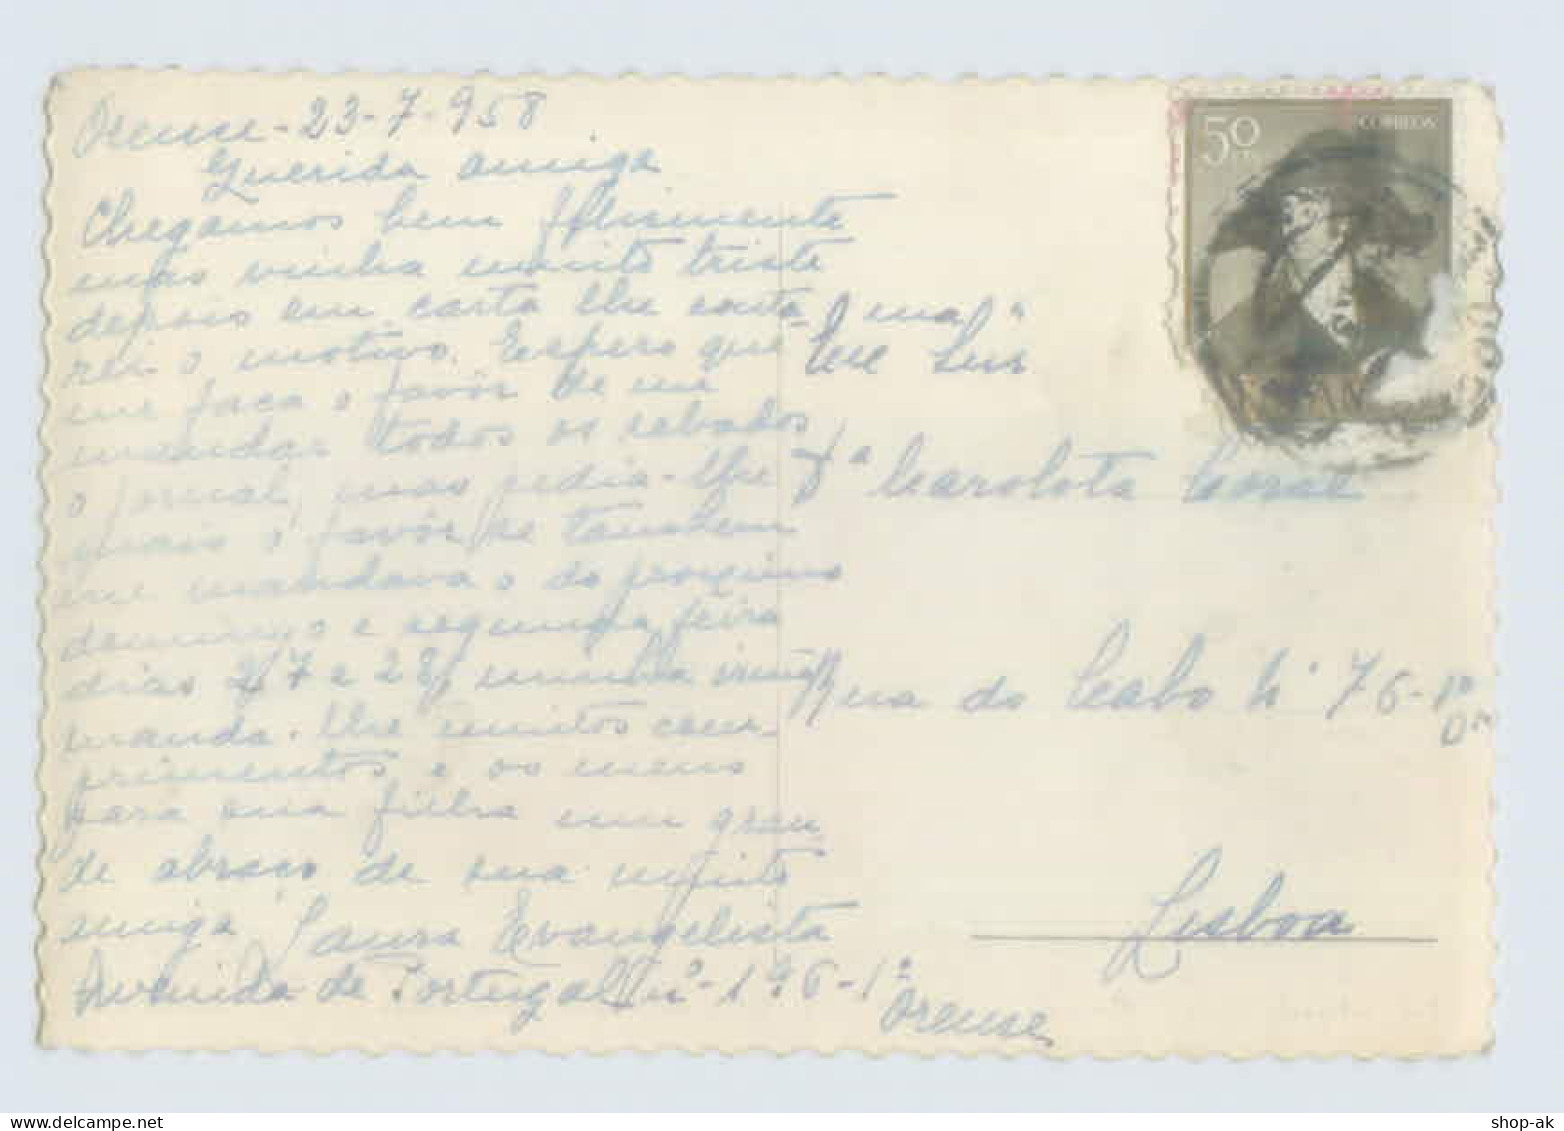 Orense - 23-7-958
Querida amiga
Chegamos bem felismente
mas vinha muito triste
depois em carta lhe conta-
rei o motivo. Espero que
me faça o favôr de me
mandar todos os sebados
o jornal, mas pedia-lhe
mais o favôr de tambem
me mandava o do proximo
demingo e segunda feira
dias 27 e 28, minha irmã
manda-lhe muitos com-
primentos e os meus
para sua filha um gran
de abraço de sua muito
amiga Laura Evangelista
Avenida de Portugal nº-196-1º
Orense
50 CTS
CORREOS
Ex ma
D ª Carolota
Rua do Cabo Nº 76-1º
Dº
Lisboa
shop-ak